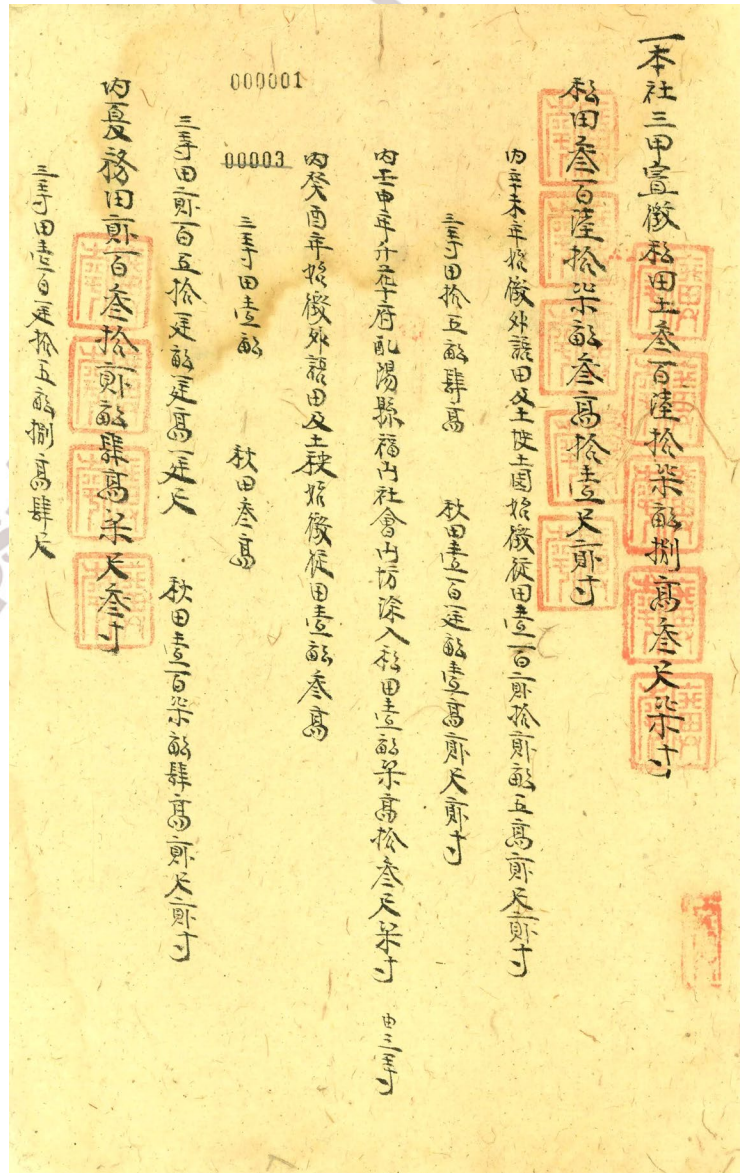 一本社三甲實徵私田土叁百陸拾柒畝捌高叁尺柒寸
私田叁百陸拾柒畝叁高拾壹尺貳寸
内辛未年始徵外諸田及土陂土園始徵從田壹百貳拾貳畝五高貳尺貳寸
三等田拾五畝肆高
秋田壹百𨑮畝壹高貳尺貳寸
内壬申年升華府配陽縣福山社會山坊深入私田壹畝柒高拾叁尺柒寸 由三等
内癸酉年始徵外諸田及土秧始徵從田壹畝叁高
三等田壹畝
秋田叁高
三等田貳百五拾𨑮畝𨑮高𨑮尺
秋田壹百柒畝肆高貳尺貳寸
内夏務田貳百叁拾貳畝肆高柒尺叁寸
三等田壹百𨑮拾五畝捌高肆尺
000001
00003